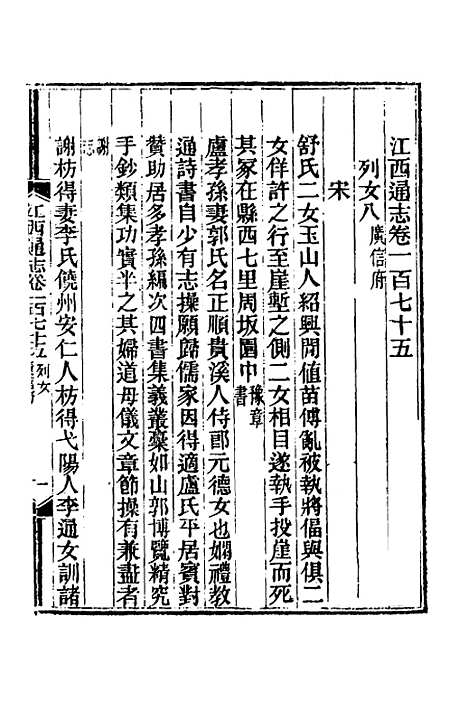 江西通志卷一百七十五
列女八廣信府
宋
舒氏二女玉山人紹興閒値苗傅亂被執將偪與俱二
女佯許之行至崖塹之側二女相目遂執手投崖而死
其冢在縣西七里周坂園巾豫章書
盧孝孫妻郭氏名正順貴溪人侍郎元德女也嫻禮教
通詩書自少有志操願歸儒家因得適盧氏平居賓對
贊助居多孝孫編次四書集義叢藁如山郭博覽精究
手鈔類集功實半之其婦道母儀文章節操有兼盡者
謝志
謝枋得妻李氏饒州安仁人枋得弋陽人李通女訓諸
江西通志卷一百七十五 列女 一